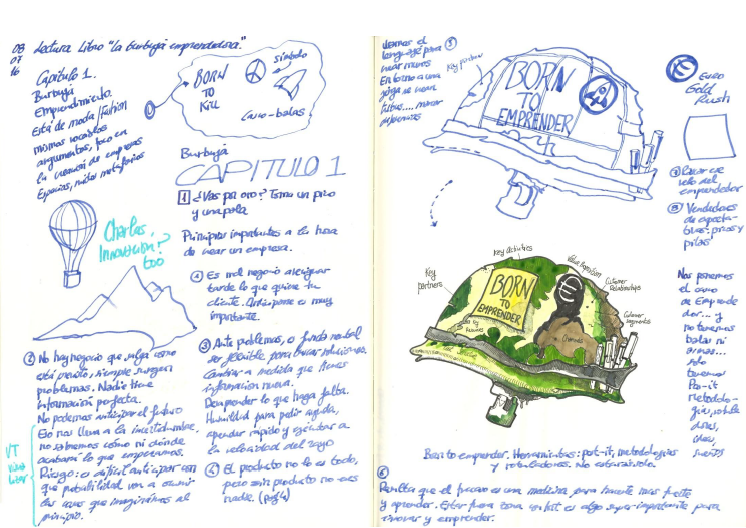 08
07
16
Lectura Libro "la burbuja emprendedora."
Capítulo 1.
Burbuja
Emprendimiento.
Está de moda/fashion
mismos vocablos
argumentos, foco en
la creación de empresas
Espacios, mitos metáforas
BORN
TO
Kill
símbolo
Casco-balas
Burbuja
CAPITULO 1
1 ¿Vas por oro? Toma un pico
y una pala
Principios importantes a la hora
de crear un empresa.
① Es mal negocio averiguar
tarde lo que quiere tu
cliente. Anticiparse es muy
importante.
Charlas,
Innovación?
② No hay negocio que salga como
está previsto, siempre surgen
problemas. Nadie tiene
información perfecta.
No podemos anticipar el futuro
Eso nos lleva a la incertidumbre.
no sabremos cómo ni dónde
acabará lo que empezamos.
Riesgo: es difícil anticipar con
que probabilidad van a ocurrir
las cosas que imaginamos al
principio.
③ Ante problemas, es fundamental
ser flexible para buscar soluciones.
Cambiar a medida que tienes
información nueva.
Desaprender lo que haga falta.
Humildad para pedir ayuda,
aprender rápido y ejecutar a
la velocidad del rayo
④ El producto no lo es todo,
pero sin producto no eres
nadie. (pag 4)
⑤
lenguaje para
crear
En torno a una
Key partners
BORN
TO
EMPRENDER
Euro
Gold
Rush
velo del
emprendedor
Vendedores
picos y
palas
Key Activities
Key
partners
Value Proposition
Customer
Relationships
Customer
Segments
BORN
TO
EMPRENDER
Channels
Nos ponemos
el casco
de Emprende
dor... y
no tenemos
balas ni
armas...
solo
tenemos
Post-it
metodolo-
gías,
ideas,
sueños
Born to emprender. Herramientas: post-it, metodologías
y rotuladores. No estarás solo.
⑥
Resulta que el fracaso es una medicina para hacerte mas fuerte
y aprender. Estar fuera zona confort es algo super importante para
innovar y emprender.